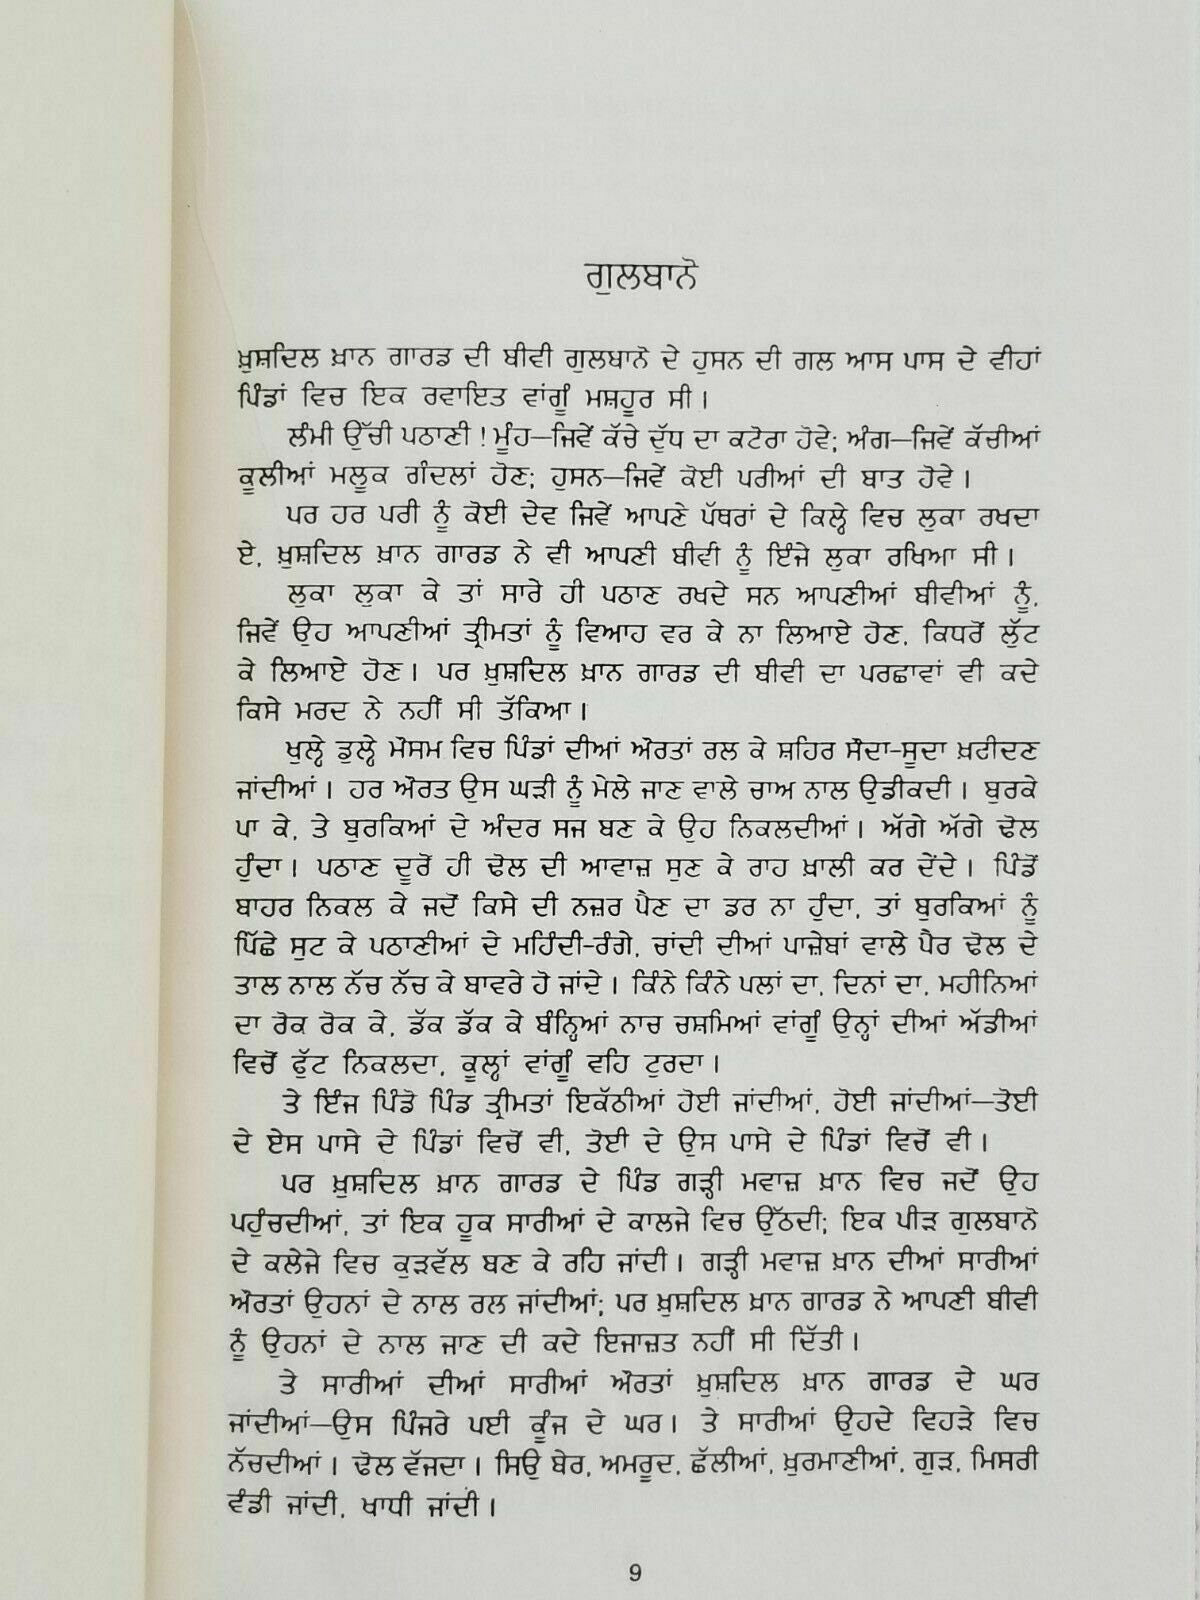 ਗੁਲਬਾਨੋ
ਖ਼ੁਸ਼ਦਿਲ ਖ਼ਾਨ ਗਾਰਡ ਦੀ ਬੀਵੀ ਗੁਲਬਾਨੋ ਦੇ ਹੁਸਨ ਦੀ ਗਲ ਆਸ ਪਾਸ ਦੇ ਵੀਹਾਂ
ਪਿੰਡਾਂ ਵਿਚ ਇਕ ਰਵਾਇਤ ਵਾਂਗੂੰ ਮਸ਼ਹੂਰ ਸੀ।
ਲੰਮੀ ਉੱਚੀ ਪਠਾਣੀ ! ਮੂੰਹ—ਜਿਵੇਂ ਕੱਚੇ ਦੁੱਧ ਦਾ ਕਟੋਰਾ ਹੋਵੇ; ਅੰਗ—ਜਿਵੇਂ ਕੱਚੀਆਂ
ਕੂਲੀਆਂ ਮਲੂਕ ਗੰਦਲਾਂ ਹੋਣ; ਹੁਸਨ—ਜਿਵੇਂ ਕੋਈ ਪਰੀਆਂ ਦੀ ਬਾਤ ਹੋਵੇ।
ਪਰ ਹਰ ਪਰੀ ਨੂੰ ਕੋਈ ਦੇਵ ਜਿਵੇਂ ਆਪਣੇ ਪੱਥਰਾਂ ਦੇ ਕਿਲ੍ਹੇ ਵਿਚ ਲੁਕਾ ਰਖਦਾ
ਏ, ਖ਼ੁਸ਼ਦਿਲ ਖ਼ਾਨ ਗਾਰਡ ਨੇ ਵੀ ਆਪਣੀ ਬੀਵੀ ਨੂੰ ਇੰਜੇ ਲੁਕਾ ਰਖਿਆ ਸੀ।
ਲੁਕਾ ਲੁਕਾ ਕੇ ਤਾਂ ਸਾਰੇ ਹੀ ਪਠਾਣ ਰਖਦੇ ਸਨ ਆਪਣੀਆਂ ਬੀਵੀਆਂ ਨੂੰ,
ਜਿਵੇਂ ਉਹ ਆਪਣੀਆਂ ਤ੍ਰੀਮਤਾਂ ਨੂੰ ਵਿਆਹ ਵਰ ਕੇ ਨਾ ਲਿਆਏ ਹੋਣ, ਕਿਧਰੋਂ ਲੁੱਟ
ਕੇ ਲਿਆਏ ਹੋਣ। ਪਰ ਖ਼ੁਸ਼ਦਿਲ ਖ਼ਾਨ ਗਾਰਡ ਦੀ ਬੀਵੀ ਦਾ ਪਰਛਾਵਾਂ ਵੀ ਕਦੇ
ਕਿਸੇ ਮਰਦ ਨੇ ਨਹੀਂ ਸੀ ਤੱਕਿਆ।
ਖੁਲ੍ਹੇ ਡੁਲ੍ਹੇ ਮੌਸਮ ਵਿਚ ਪਿੰਡਾਂ ਦੀਆਂ ਔਰਤਾਂ ਰਲ ਕੇ ਸ਼ਹਿਰ ਸੌਦਾ-ਸੂਦਾ ਖ਼ਰੀਦਣ
ਜਾਂਦੀਆਂ। ਹਰ ਔਰਤ ਉਸ ਘੜੀ ਨੂੰ ਮੇਲੇ ਜਾਣ ਵਾਲੇ ਚਾਅ ਨਾਲ ਉਡੀਕਦੀ। ਬੁਰਕੇ
ਪਾ ਕੇ, ਤੇ ਬੁਰਕਿਆਂ ਦੇ ਅੰਦਰ ਸਜ ਬਣ ਕੇ ਉਹ ਨਿਕਲਦੀਆਂ। ਅੱਗੇ ਅੱਗੇ ਢੋਲ
ਹੁੰਦਾ। ਪਠਾਣ ਦੂਰੋਂ ਹੀ ਢੋਲ ਦੀ ਆਵਾਜ਼ ਸੁਣ ਕੇ ਰਾਹ ਖ਼ਾਲੀ ਕਰ ਦੇਂਦੇ। ਪਿੰਡੋਂ
ਬਾਹਰ ਨਿਕਲ ਕੇ ਜਦੋਂ ਕਿਸੇ ਦੀ ਨਜ਼ਰ ਪੈਣ ਦਾ ਡਰ ਨਾ ਹੁੰਦਾ, ਤਾਂ ਬੁਰਕਿਆਂ ਨੂੰ
ਪਿੱਛੇ ਸੁਟ ਕੇ ਪਠਾਣੀਆਂ ਦੇ ਮਹਿੰਦੀ-ਰੰਗੇ, ਚਾਂਦੀ ਦੀਆਂ ਪਾਜ਼ੇਬਾਂ ਵਾਲੇ ਪੈਰ ਢੋਲ ਦੇ
ਤਾਲ ਨਾਲ ਨੱਚ ਨੱਚ ਕੇ ਬਾਵਰੇ ਹੋ ਜਾਂਦੇ। ਕਿੰਨੇ ਕਿੰਨੇ ਪਲਾਂ ਦਾ, ਦਿਨਾਂ ਦਾ, ਮਹੀਨਿਆਂ
ਦਾ ਰੋਕ ਰੋਕ ਕੇ, ਡੱਕ ਡੱਕ ਕੇ ਬੰਨ੍ਹਿਆਂ ਨਾਚ ਚਸ਼ਮਿਆਂ ਵਾਂਗੂੰ ਉਨ੍ਹਾਂ ਦੀਆਂ ਅੱਡੀਆਂ
ਵਿਚੋਂ ਫੁੱਟ ਨਿਕਲਦਾ, ਕੂਲ੍ਹਾਂ ਵਾਂਗੂੰ ਵਹਿ ਟੁਰਦਾ।
ਤੇ ਇੰਜ ਪਿੰਡੋ ਪਿੰਡ ਤ੍ਰੀਮਤਾਂ ਇਕੱਠੀਆਂ ਹੋਈ ਜਾਂਦੀਆਂ, ਹੋਈ ਜਾਂਦੀਆਂ—ਤੋਈ
ਦੇ ਏਸ ਪਾਸੇ ਦੇ ਪਿੰਡਾਂ ਵਿਚੋਂ ਵੀ, ਤੋਈ ਦੇ ਉਸ ਪਾਸੇ ਦੇ ਪਿੰਡਾਂ ਵਿਚੋਂ ਵੀ।
ਪਰ ਖ਼ੁਸ਼ਦਿਲ ਖ਼ਾਨ ਗਾਰਡ ਦੇ ਪਿੰਡ ਗੜ੍ਹੀ ਮਵਾਜ਼ ਖ਼ਾਨ ਵਿਚ ਜਦੋਂ ਉਹ
ਪਹੁੰਚਦੀਆਂ, ਤਾਂ ਇਕ ਹੂਕ ਸਾਰੀਆਂ ਦੇ ਕਾਲਜੇ ਵਿਚ ਉੱਠਦੀ; ਇਕ ਪੀੜ ਗੁਲਬਾਨੋ
ਦੇ ਕਲੇਜੇ ਵਿਚ ਕੁੜਵੱਲ ਬਣ ਕੇ ਰਹਿ ਜਾਂਦੀ। ਗੜ੍ਹੀ ਮਵਾਜ਼ ਖ਼ਾਨ ਦੀਆਂ ਸਾਰੀਆਂ
ਔਰਤਾਂ ਉਹਨਾਂ ਦੇ ਨਾਲ ਰਲ ਜਾਂਦੀਆਂ; ਪਰ ਖ਼ੁਸ਼ਦਿਲ ਖ਼ਾਨ ਗਾਰਡ ਨੇ ਆਪਣੀ ਬੀਵੀ
ਨੂੰ ਉਹਨਾਂ ਦੇ ਨਾਲ ਜਾਣ ਦੀ ਕਦੇ ਇਜਾਜ਼ਤ ਨਹੀਂ ਸੀ ਦਿੱਤੀ।
ਤੇ ਸਾਰੀਆਂ ਦੀਆਂ ਸਾਰੀਆਂ ਔਰਤਾਂ ਖ਼ੁਸ਼ਦਿਲ ਖ਼ਾਨ ਗਾਰਡ ਦੇ ਘਰ
ਜਾਂਦੀਆਂ—ਉਸ ਪਿੰਜਰੇ ਪਈ ਕੂੰਜ ਦੇ ਘਰ। ਤੇ ਸਾਰੀਆਂ ਉਹਦੇ ਵਿਹੜੇ ਵਿਚ
ਨੱਚਦੀਆਂ। ਢੋਲ ਵੱਜਦਾ। ਸਿਉ ਬੇਰ, ਅਮਰੂਦ, ਛੱਲੀਆਂ, ਖ਼ੁਰਮਾਣੀਆਂ, ਗੁੜ, ਮਿਸਰੀ
ਵੰਡੀ ਜਾਂਦੀ, ਖਾਧੀ ਜਾਂਦੀ।
9